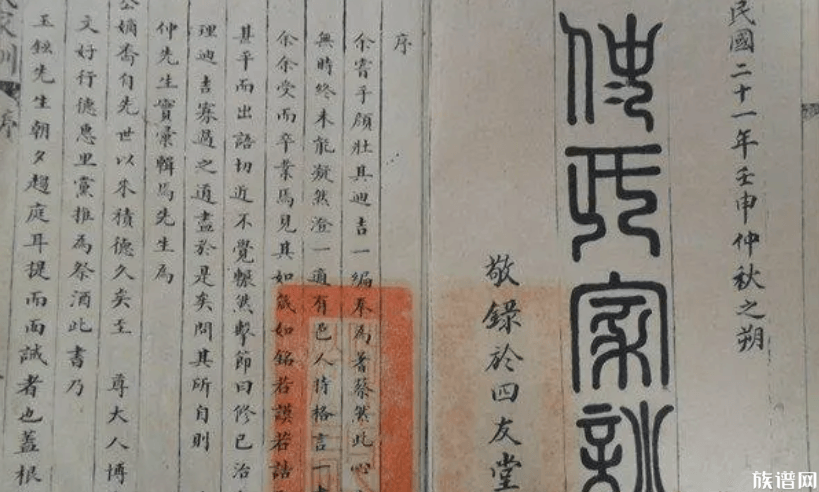 民國二十一年壬申仲秋之朔
氏家訓
敬錄於四友堂
序
余嘗手顏壯其迪吉一編奉為蓍蔡然此心
無時終未能凝然澄一適有邑人持格言一
余余受而卒業焉見其如箴如銘若謨若誥
甚平而出語切近不覺冁然擊節曰修已治
理迪吉寡過之道盡於是矣問其所自則
仲先生實彙輯焉先生為
公嫡裔自先世以來積德久矣至 尊大人博
文好行德惠里黨推為祭酒此書乃
玉鉉先生朝夕趨庭耳提而面誡者也蓋根
家訓 序
族谱网